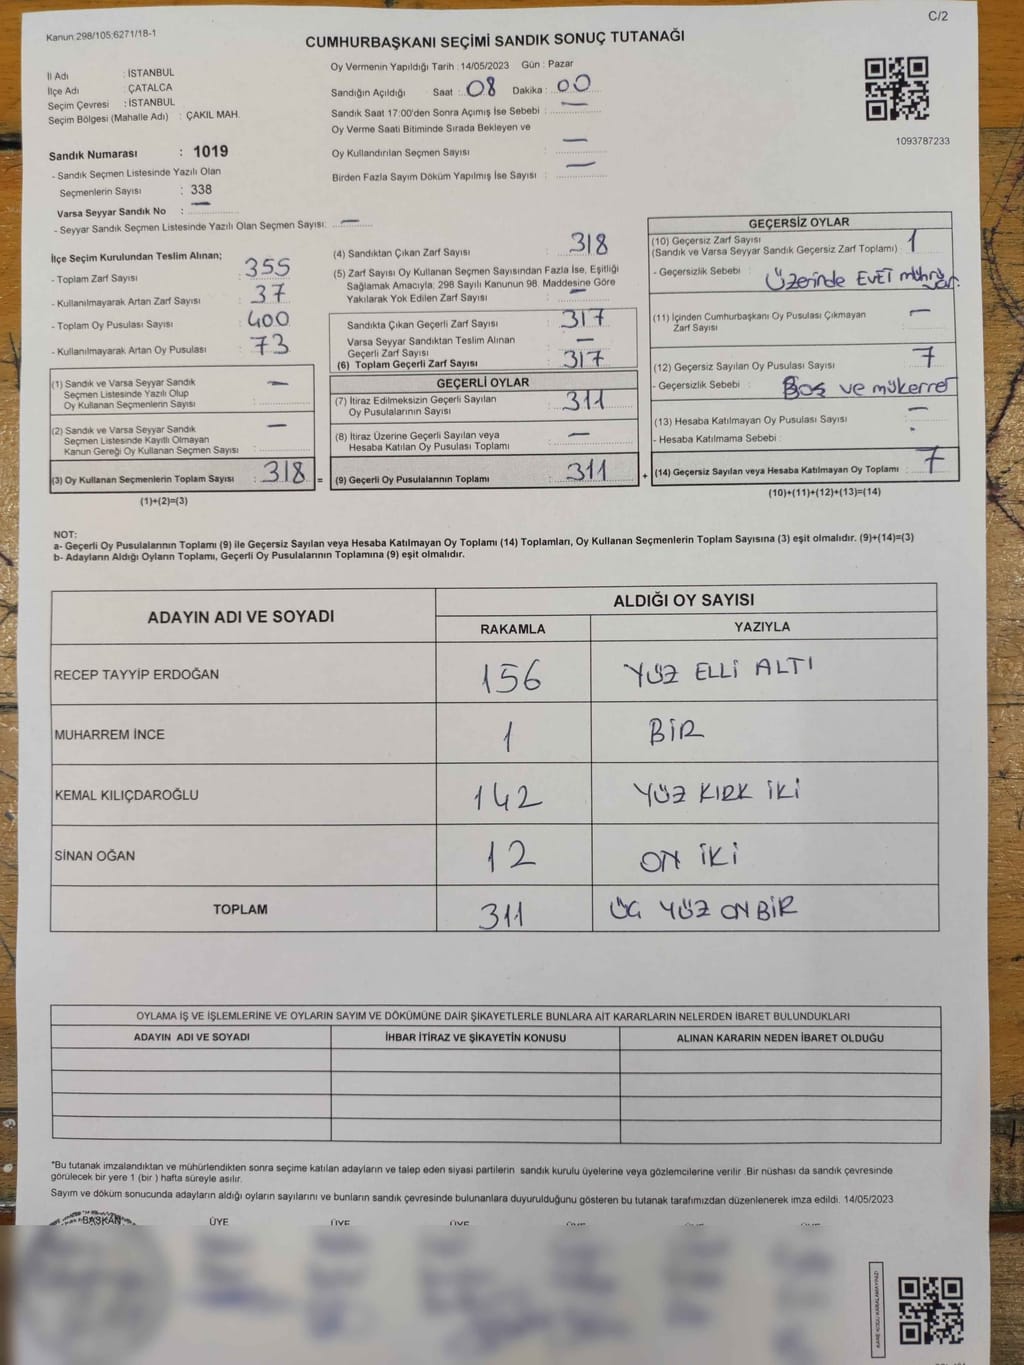 C/2
Kanun:298/105;6271/18-1
CUMHURBAŞKANI SEÇİMİ SANDIK SONUÇ TUTANAĞI
İl Adı : İSTANBUL
İlçe Adı : ÇATALCA
Seçim Çevresi : İSTANBUL
Seçim Bölgesi (Mahalle Adı) : ÇAKIL MAH.
Sandık Numarası : 1019
- Sandık Seçmen Listesinde Yazılı Olan
Seçmenlerin Sayısı : 338
Varsa Seyyar Sandık No : —
- Seyyar Sandık Seçmen Listesinde Yazılı Olan Seçmen Sayısı: —
Oy Vermenin Yapıldığı Tarih : 14/05/2023 Gün : Pazar
Sandığın Açıldığı Saat : 08 Dakika : 00
Sandık Saat 17:00'den Sonra Açımış İse Sebebi : —
Oy Verme Saati Bitiminde Sırada Bekleyen ve
Oy Kullandırılan Seçmen Sayısı : —
Birden Fazla Sayım Döküm Yapılmış İse Sayısı : —
1093787233
İlçe Seçim Kurulundan Teslim Alınan;
- Toplam Zarf Sayısı : 355
- Kullanılmayarak Artan Zarf Sayısı : 37
- Toplam Oy Pusulası Sayısı : 400
- Kullanılmayarak Artan Oy Pusulası : 73
(1) Sandık ve Varsa Seyyar Sandık
Seçmen Listesinde Yazılı Olup
Oy Kullanan Seçmenlerin Sayısı : —
(2) Sandık ve Varsa Seyyar Sandık
Seçmen Listesinde Kayıtlı Olmayan
Kanun Gereği Oy Kullanan Seçmen Sayısı : —
(3) Oy Kullanan Seçmenlerin Toplam Sayısı : 318 =
(1)+(2)=(3)
(4) Sandıktan Çıkan Zarf Sayısı : 318
(5) Zarf Sayısı Oy Kullanan Seçmen Sayısından Fazla İse, Eşitliği
Sağlamak Amacıyla; 298 Sayılı Kanunun 98. Maddesine Göre
Yakılarak Yok Edilen Zarf Sayısı : —
Sandıkta Çıkan Geçerli Zarf Sayısı : 317
Varsa Seyyar Sandıktan Teslim Alınan
Geçerli Zarf Sayısı : —
(6) Toplam Geçerli Zarf Sayısı : 317
GEÇERLİ OYLAR
(7) İtiraz Edilmeksizin Geçerli Sayılan
Oy Pusulalarının Sayısı : 311
(8) İtiraz Üzerine Geçerli Sayılan veya
Hesaba Katılan Oy Pusulası Toplamı : —
(9) Geçerli Oy Pusulalarının Toplamı : 311 +
GEÇERSİZ OYLAR
(10) Geçersiz Zarf Sayısı : 1
(Sandık ve Varsa Seyyar Sandık Geçersiz Zarf Toplamı)
- Geçersizlik Sebebi : Üzerinde EVET mührü var.
(11) İçinden Cumhurbaşkanı Oy Pusulası Çıkmayan
Zarf Sayısı : —
(12) Geçersiz Sayılan Oy Pusulası Sayısı : 7
- Geçersizlik Sebebi : Boş ve mükerrer
(13) Hesaba Katılmayan Oy Pusulası Sayısı : —
- Hesaba Katılmama Sebebi :
(14) Geçersiz Sayılan veya Hesaba Katılmayan Oy Toplamı : 7
(10)+(11)+(12)+(13)=(14)
NOT:
a- Geçerli Oy Pusulalarının Toplamı (9) ile Geçersiz Sayılan veya Hesaba Katılmayan Oy Toplamı (14) Toplamları, Oy Kullanan Seçmenlerin Toplam Sayısına (3) eşit olmalıdır. (9)+(14)=(3)
b- Adayların Aldığı Oyların Toplamı, Geçerli Oy Pusulalarının Toplamına (9) eşit olmalıdır.
ADAYIN ADI VE SOYADI ALDIĞI OY SAYISI
RAKAMLA YAZIYLA
RECEP TAYYİP ERDOĞAN 156 YÜZ ELLİ ALTI
MUHARREM İNCE 1 BİR
KEMAL KILIÇDAROĞLU 142 YÜZ KIRK İKİ
SİNAN OĞAN 12 ON İKİ
TOPLAM 311 ÜÇ YÜZ ON BİR
OYLAMA İŞ VE İŞLEMLERİNE VE OYLARIN SAYIM VE DÖKÜMÜNE DAİR ŞİKAYETLERLE BUNLARA AİT KARARLARIN NELERDEN İBARET BULUNDUKLARI
ADAYIN ADI VE SOYADI İHBAR İTİRAZ VE ŞİKAYETİN KONUSU ALINAN KARARIN NEDEN İBARET OLDUĞU
*Bu tutanak imzalandıktan ve mühürlendikten sonra seçime katılan adayların ve talep eden siyasi partilerin sandık kurulu üyelerine veya gözlemcilerine verilir .Bir nüshası da sandık çevresinde
görülecek bir yere 1 (bir ) hafta süreyle asılır.
Sayım ve döküm sonucunda adayların aldığı oyların sayılarını ve bunların sandık çevresinde bulunanlara duyurulduğunu gösteren bu tutanak tarafımızdan düzenlenerek imza edildi. 14/05/2023
BAŞKAN ÜYE ÜYE ÜYE